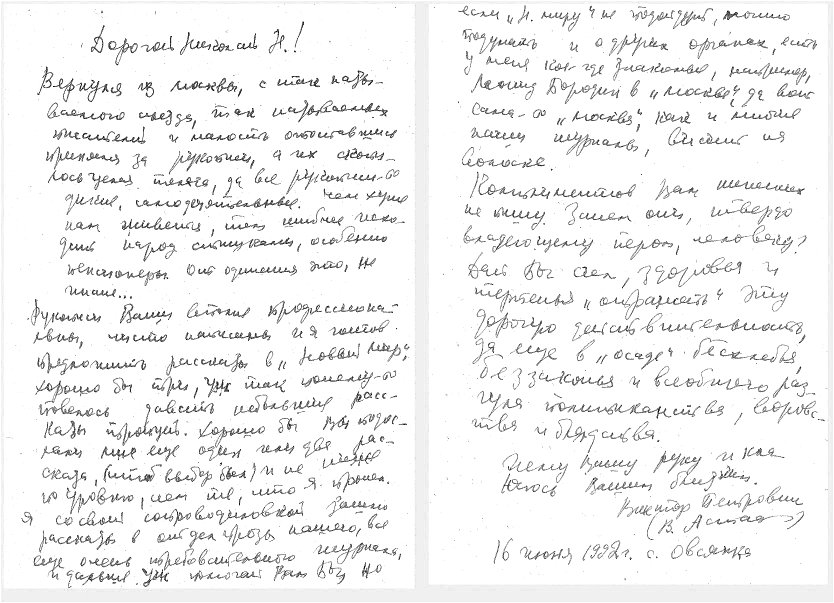 Дорогой Николай Н.!
Вернулся из Москвы, с так назы-
ваемого съезда, так называемых
писателей и малость отоспавшись
принялся за рукописи, а их скопи-
лось целая телега, да все рукописи-то
дикие, самодеятельные. Чем хуже
нам живётся, тем шибче исхо-
дит народ стишками, особенно
пенсионеры. От одичания это, не
иначе...
Рукописи Ваши вполне профессиональ
ны, чисто написаны и я готов
предложить рассказы в „Новый мир",
хорошо бы три, уж так почему-то
повелось давать небольшие расс-
казы тройцей. Хорошо бы Вы подос-
лали мне ещё один или два рас-
сказа, (чтоб выбор был) и не ниже
по уровню, чем те, что я прочёл.
Я со своей сопроводиловкой зашлю
рассказы в отдел прозы нашего, все
ещё очень требовательного журнала,
и дальше уж помогай Вам Бог. Но
если „Н. миру" не подойдут, можно
подумать и о других органах, есть
у меня кое-где знакомые, например,
Леонид Бородин в „Москве", да вот
сама-то „Москва", как и многие
наши журналы, висит на
волоске.
Комплиментов Вам никаких
не пишу. Зачем они, твёрдо
владеющему пером, человеку?
Дай Вам сил, здоровья и
терпенья „отражать" эту
дорогую действительность,
да ещё в „осаде" бесхлебья,
беззаконья и всеобщего раз-
гула политиканства, воровс-
тва и блядства.
Жму Вашу руку и кла-
няюсь Вашим близким.
Виктор Петрович
(В. Астафьев)
16 июня 1992 г. с. Овсянка